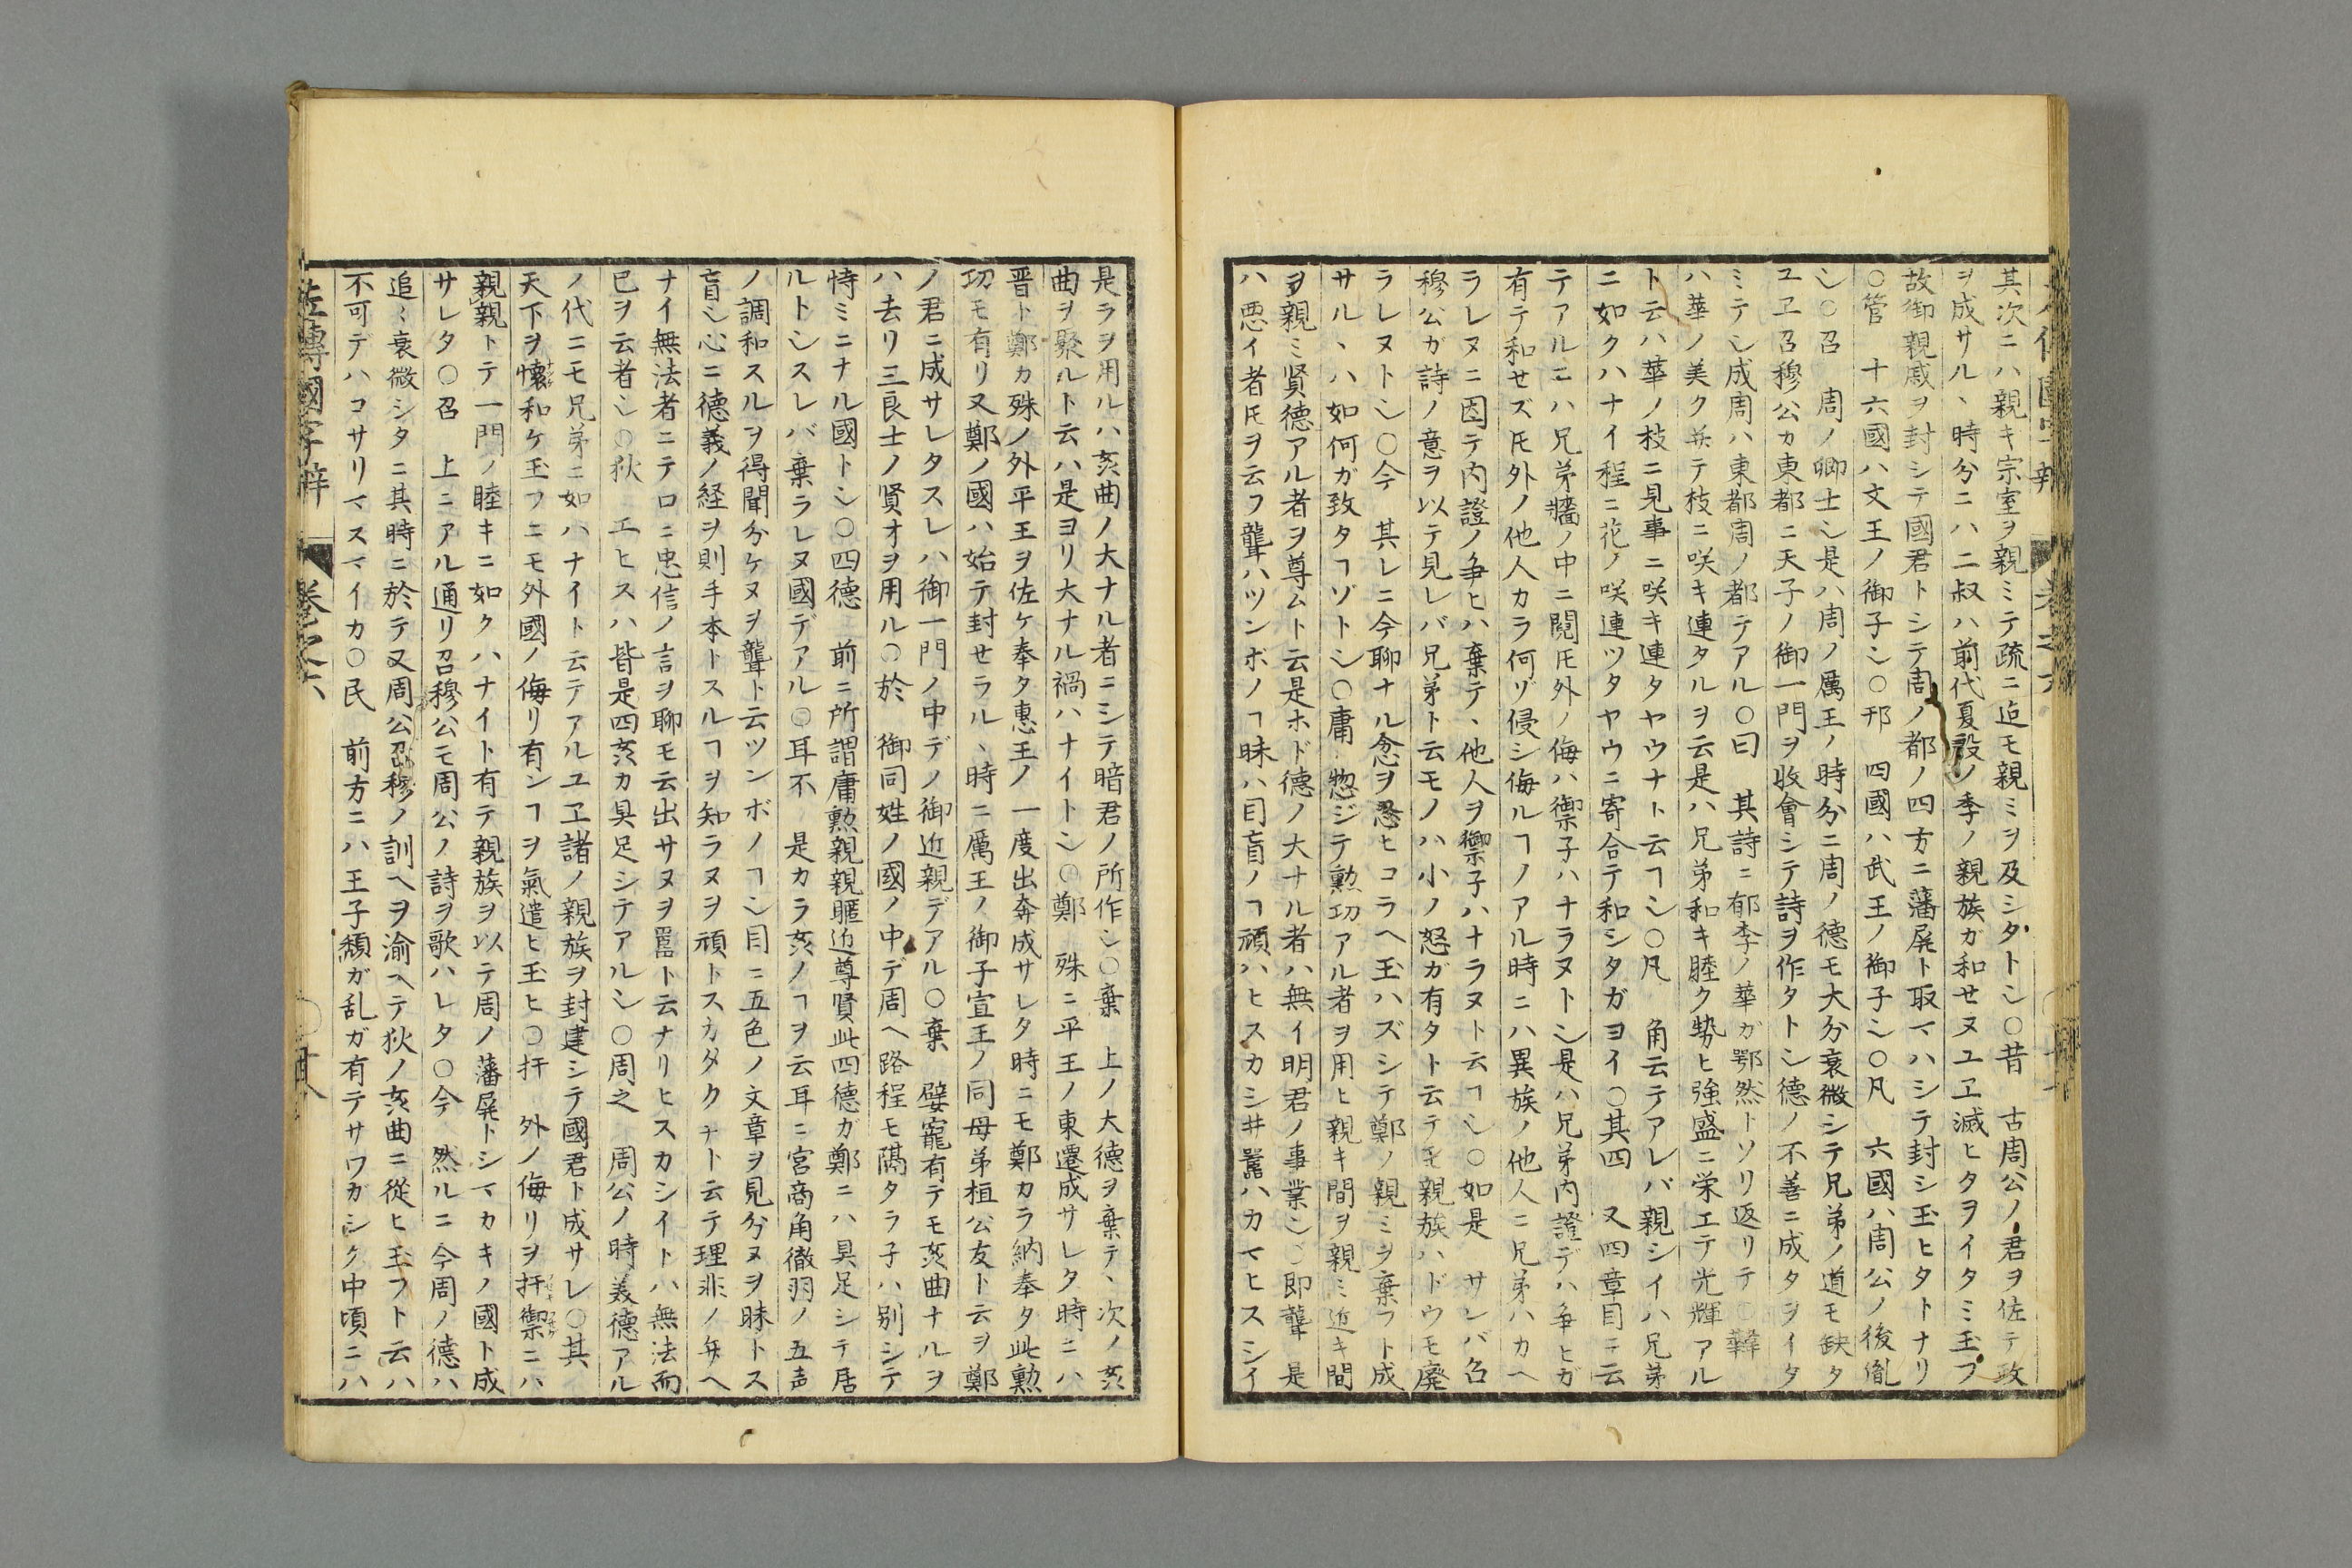 其次ニハ親キ宗室ヲ親ミテ疏ニ迠モ親ミヲ及シタト乚○昔　古周公ノ君ヲ佐テ政
ヲ成サル、時分ニハ二叔ハ前代夏殷ノ季ノ親族ガ和セヌユヱ滅ヒタヲイタミ玉フ
故御親戚ヲ封シテ國君トシテ周ノ都ノ四方ニ藩屏ト取マハシテ封シ玉ヒタトナリ
○管　十六國ハ文王ノ御子乚○邘　四國ハ武王ノ御子乚○凡　六國ハ周公ノ後胤
乚○召　周ノ卿士乚是ハ周ノ厲王ノ時分ニ周ノ德モ大分衰微シテ兄弟ノ道モ缺タ
ユヱ召穆公カ東都ニ天子ノ御一門ヲ收會シテ詩ヲ作タト乚德ノ不善ニ成タヲイタ
ミテ乚成周ハ東都周ノ都テアル○曰　其詩ニ郁李ノ華ガ鄂然トソリ返リテ○韡
ハ華ノ美ク并テ枝ニ咲キ連タルヲ云是ハ兄弟和キ睦ク勢ヒ強盛ニ栄エテ光輝アル
ト云ハ華ノ枝ニ見事ニ咲キ連タヤウナト云ヿ乚○凡　角云テアレバ親シイハ兄弟
ニ如クハナイ程ニ花ノ咲連ツタヤウニ寄合テ和シタガヨイ○其四　又四章目ニ云
テアルニハ兄弟牆ノ中ニ鬩㐧外ノ侮ハ禦子ハナラヌト乚是ハ兄弟内證デハ争ヒガ
有テ和セズ㐧外ノ他人カラ何ゾ侵シ侮ルヿノアル時ニハ異族ノ他人ニ兄弟ハカヘ
ラレヌニ因テ内證ノ争ヒハ棄テ、他人ヲ禦子ハナラヌト云ヿ乚○如是　サレバ召
穆公ガ詩ノ意ヲ以テ見レバ兄弟ト云モノハ小ノ怒ガ有タト云テモ親族ハドウモ廃
ラレヌト乚○今　其レニ今聊ナル忿ヲ忍ヒコラヘ玉ハズシテ鄭ノ親ミヲ棄フト成
サル、ハ如何ガ致タヿゾト乚○庸　惣ジテ勲功アル者ヲ用ヒ親キ間ヲ親ミ近キ間
ヲ親ミ賢德アル者ヲ尊ムト云是ホド德ノ大ナル者ハ無イ明君ノ事業乚○即聾　是
ハ悪イ者㐧ヲ云フ聾ハツンボノヿ昧ハ目盲ノヿ頑ハヒスカシ井嚚ハカマヒスシイ
是ラヲ用ルハ姦曲ノ大ナル者ニシテ暗君ノ所作乚○棄　上ノ大德ヲ棄テ、次ノ姦
曲ヲ聚ルト云ハ是ヨリ大ナル禍ハナイト乚○鄭　殊ニ平王ノ東遷成サレタ時ニハ
晋ト鄭カ殊ノ外平王ヲ佐ケ奉タ惠王ノ一度出奔成サレタ時ニモ鄭カラ納奉タ此勲
功モ有リ又鄭ノ國ハ始テ封せラル、時ニ厲王ノ御子宣王ノ同母弟桓公友ト云ヲ鄭
ノ君ニ成サレタスレハ御一門ノ中デノ御近親デアル○棄　嬖寵有テモ姦曲ナルヲ
ハ去リ三良士ノ賢オヲ用ル○於　御同姓ノ國ノ中デ周ヘ路程モ隔タラ子ハ別シテ
恃ミニナル國ト乚○四德　前ニ所謂庸勲親親暱近尊賢此四德ガ鄭ニハ具足シテ居
ルト乚スレバ棄ラレヌ國デアル○耳不　是カラ姦ノヿヲ云耳ニ宮商角徵羽ノ五声
ノ調和スルヲ得聞分ケヌヲ聾ト云ツンボノヿ乚目ニ五色ノ文章ヲ見分ヌヲ昧トス
盲乚心ニ德義ノ経ヲ則手本トスルヿヲ知ラヌヲ頑トスカダクナト云テ理非ノ弁ヘ
ナイ無法者ニテロニ忠信ノ言ヲ聊モ云出サヌヲ嚚ト云ナリヒスカシイトハ無法而
已ヲ云者乚○狄　エヒスハ皆是四姦カ具足シテアル乚○周之　周公ノ時美德アル
ノ代ニモ兄弟ニ如ハナイト云テアルユヱ諸ノ親族ヲ封建シテ國君ト成サレ○其
天下ヲ懐和ケ玉フニモ外國ノ侮リ有ンヿヲ氣遣ヒ玉ヒ○扞　外ノ侮リヲ扞禦ニハ
親親トテ一門ノ睦キニ如クハナイト有テ親族ヲ以テ周ノ藩屏トシマカキノ國ト成
サレタ○召　上ニアル通リ召穆公モ周公ノ詩ヲ歌ハレタ○今　然ルニ今周ノ德ハ
追〻衰微シタニ其時ニ於テ又周公召穆ノ訓ヘヲ渝ヘテ狄ノ姦曲ニ從ヒ玉フト云ハ
不可デハコサリマスマイカ○民　前方ニハ王子頽ガ乱ガ有テサワガシク中頃ニハ
左傳國字辯　卷之六